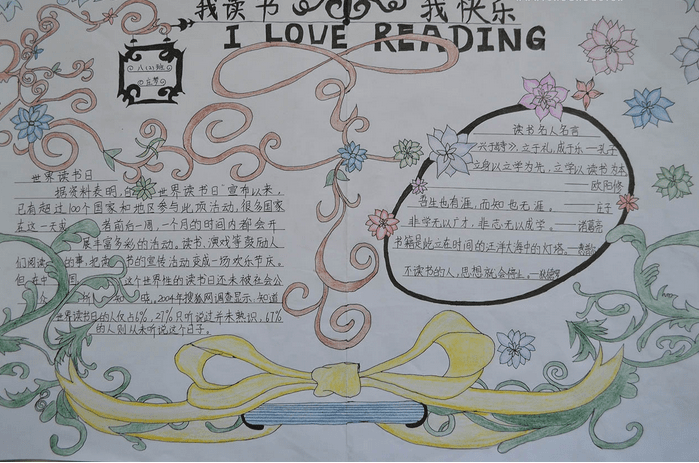 我读书 我快乐
I LOVE READING
八(2)班
世界读书日
据资料表明,自"世界读书日"宣布以来,
已有超过100个国家和地区参与此项活动,很多国家
在这一天或者前后一周,一个月的时间内都会开
展丰富多彩的活动。读书,演戏等鼓励人
们阅读的事,把读书的宣传活动变成一场欢乐节庆。
但在中国这个世界性的读书日还未被社会公
2004年搜狐网调查显示,知道
世界读书日的人仅占6%,27%只听说过并未熟识,67%
的人则从未听说这个日子。
读书名人名言
兴于诗,立于礼,成于乐——孔子
立身以立学为先,立学以读书为本
——欧阳修
吾生也有涯,而知也无涯。——庄子
非学无以广才,非志无以成学。——诸葛亮
书籍是屹立在时间的汪洋大海中的灯塔。
不读书的人,思想就会停止。